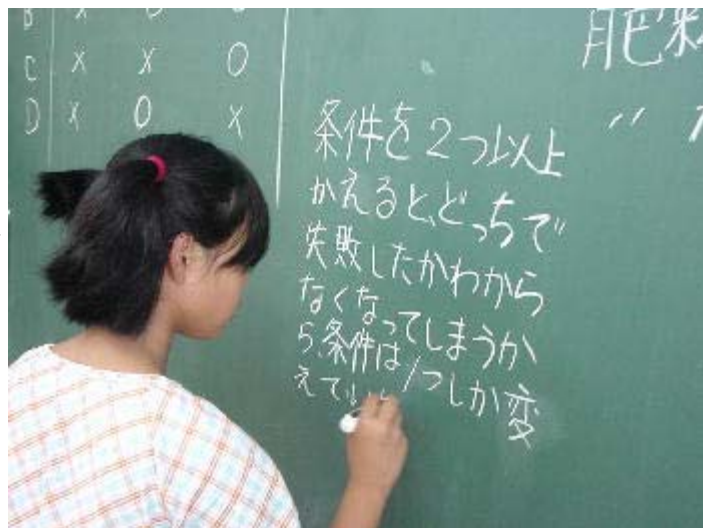 B X O O
C X X O
D X O X
肥料
〃
条件を2つ以上
かえると、どっちで
失敗したかわから
なくなってしまうか
ら、条件は1つしか変
えてい